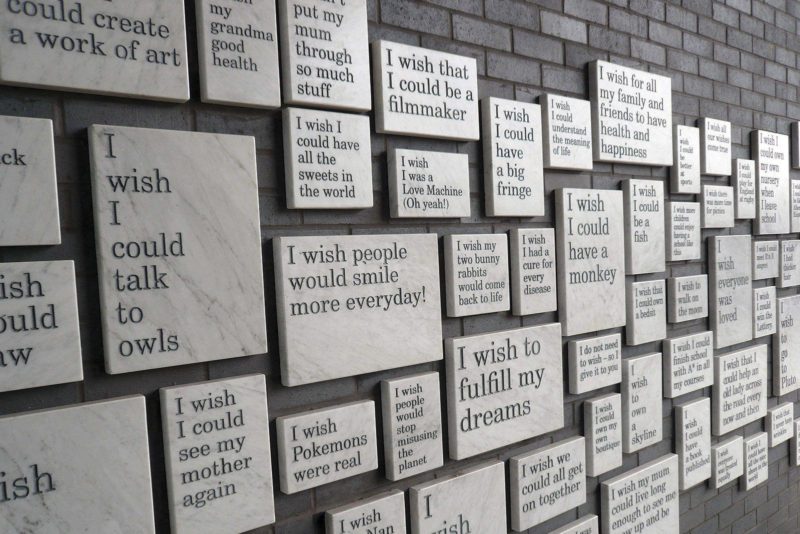 could create
a work of art
my
grandma
good
health
put my
mum
through
so much
stuff
I wish that
I could be a
filmmaker
I wish for all
my family and
friends to have
health and
happiness
I wish
I could
understand
the meaning
of life
I wish
I could
have
a big
fringe
I wish I
could have
all the
sweets in
the world
I wish
I was a
Love Machine
(Oh yeah!)
I wish
I could
be
better at
sports
I wish all
our wishes
come true
I wish
I could
pay for
England
I wish I
could own
my own
nursery
when
I leave
school
I
wish
I
could
talk
to
owls
I wish people
would smile
more everyday!
I wish my
two bunny
rabbits
would come
back to life
I wish
I had a
cure for
every
disease
I wish
I could
have a
monkey
I wish
I could
be a
fish
I wish more
children
could enjoy
having a
school like
this
I wish there
was more time
for
I
wish
everyone
was
loved
I wish that
I could own
a bedsit
I wish to
walk on
the moon
I wish
I could
win the
Lottery
I
wish
to
go
to
Pluto
ish
ould
w
I wish to
fulfill my
dreams
I do not need
to wish – so I
give it to you
I wish I could
finish school
with A* in all
my courses
I wish that I
could help an
old lady across
the road every
now and then
I
wish
to
own
a
skyline
I wish
I could
see my
mother
again
I wish
Pokemons
were real
I wish
people
would
stop
misusing
the
planet
I wish
I could
own my
own
boutique
I wish
I could
have
a book
published
I wish
everyone
was
treated
equally
ish
I wish we
could all get
on together
I wish my mum
could live long
enough to see me
up and be
I wish
Nan
I
wish